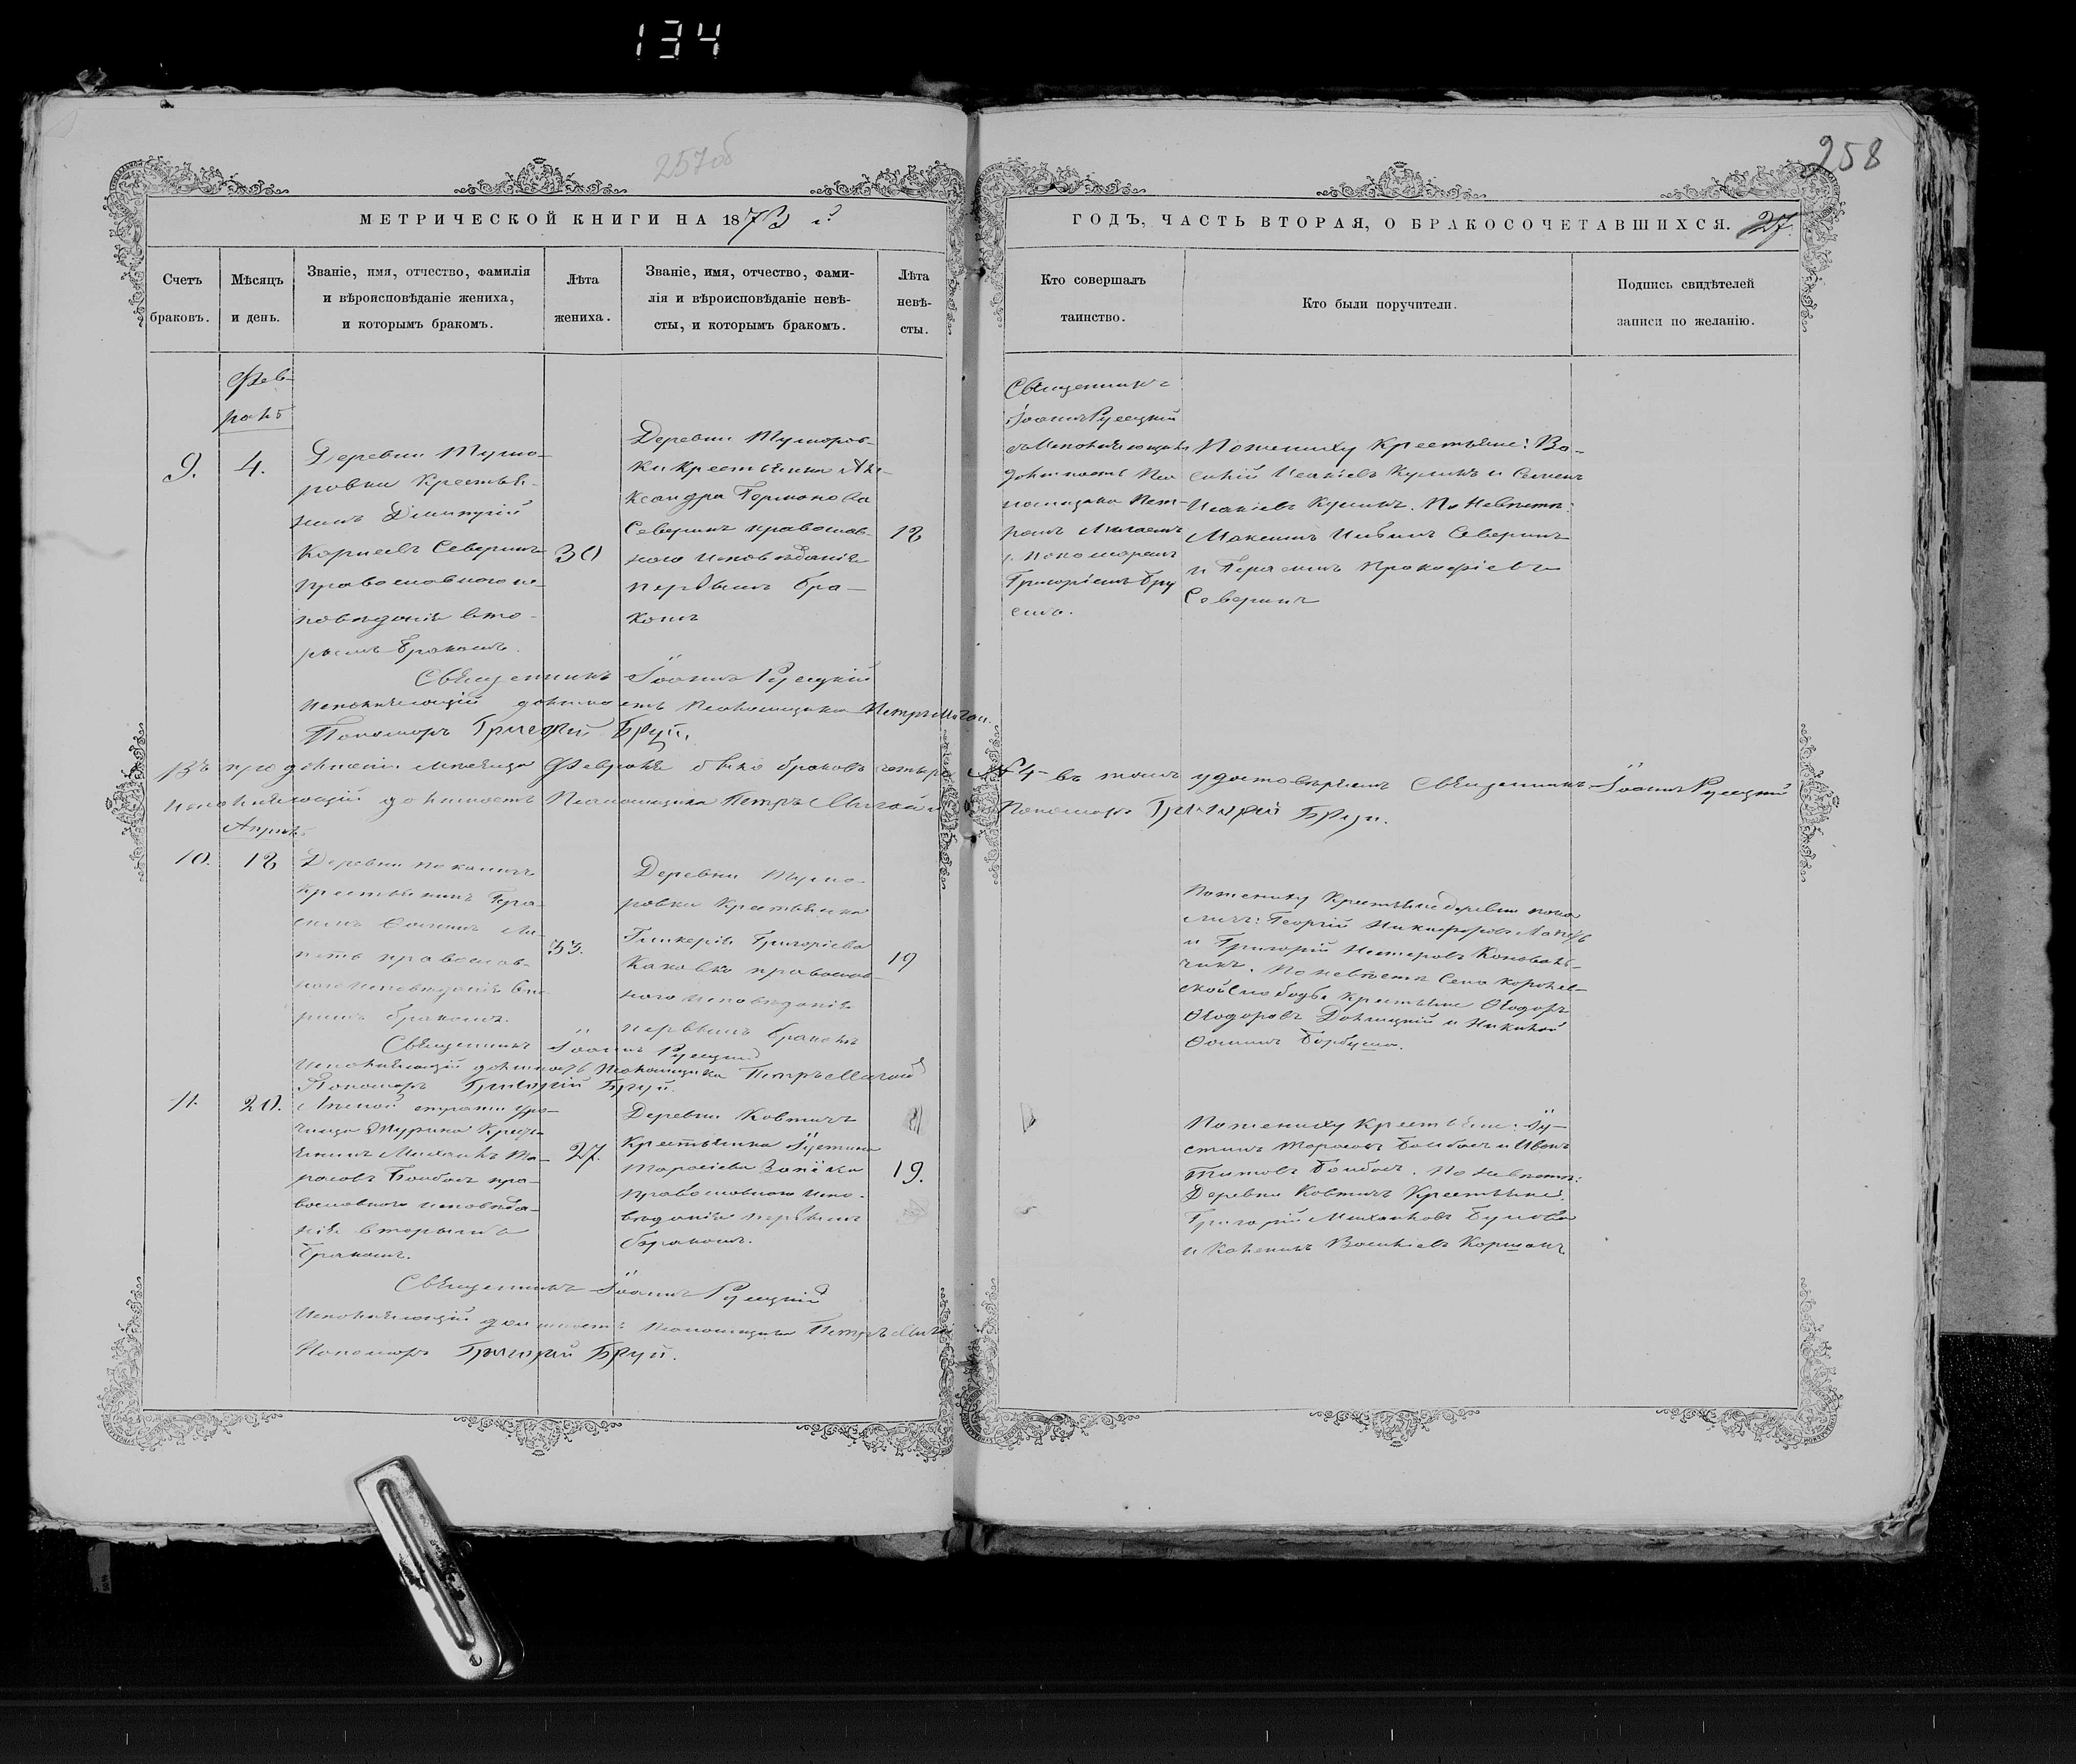 134
257об
258
МЕТРИЧЕСКОЙ КНИГИ НА 1873 й
ГОДЪ, ЧАСТЬ ВТОРАЯ, О БРАКОСОЧЕТАВШИХСЯ. 27.
Счетъ
браковъ.
Мѣсяцъ
и день.
Званіе, имя, отчество, фамилія
и вѣроисповѣданіе жениха,
и которымъ бракомъ.
Лѣта
жениха.
Званіе, имя, отчество, фами-
лія и вѣроисповѣданіе невѣ-
сты, и которымъ бракомъ.
Лѣта
невѣ-
сты.
Кто совершалъ
таинство.
Кто были поручители.
Подпись свидѣтелей
записи по желанію.
Фев-
раль
9.
4.
Деревни Тумо-
ровки Крестья-
нинъ Димитрій
Корнеевъ Северинъ
православнаго ис-
повѣданія вто-
рымъ бракомъ.
30
Деревни Тумаров-
ки крестьянка Але-
ксандра Германова
Северинъ православ-
ного исповѣданія
первымъ бра-
комъ
18
Священникъ
Іоаннъ Русецкій
съ исполняющимъ
должность Пса-
ломщика Пет-
ромъ Мигаемъ
и Пономаремъ
Григоріемъ Бру
емъ.
По жениху Крестьяне: Ва-
силій Исакіевъ Куликъ и Семенъ
Исакіевъ Куликъ. По Невѣстѣ:
Максимъ Северинъ
и Герасимъ Прокофіевъ
Северинъ
Священникъ Іоаннъ Русецкій
Исполняющій должность Псаломщика Петръ Мигай
Пономаръ Григорій Бруй.
Въ продолженіи мѣсяца Февраля было браковъ четыре № 4 въ томъ удостовѣряемъ Священникъ Іоаннъ Русецкій
Исполняющій должность Псаломщика Петръ Мигай и Пономаръ Григорій Бруй.
Апрѣль
10.
18
Деревни
Крестьянинъ Гера-
симъ Ѳоминъ Ли-
православ-
ного исповѣданія вто-
рымъ бракомъ.
33.
Деревни Тумо-
ровки Крестьянка
Гликерія Григоріева
православ-
ного исповѣданія
первымъ бракомъ
19
По жениху Крестьяне деревни
Георгій Никифоровъ
и Григорій Несторовъ Коновал-
чикъ. По невѣстѣ Села Королев-
ской Слободы Крестьяне Ѳеодоръ
Ѳеодоровъ и Николай
Ѳоминъ Борбуша.
Священникъ Іоаннъ Русецкій
Исполняющій должность Псаломщика Петръ Мигай
Пономаръ Григорій Бруй.
11.
20.
Лѣсной стражи уро-
чища Журина Кресть-
янинъ Михаилъ Та-
расовъ пра-
вославного исповѣда-
нія вторымъ
бракомъ.
27.
Деревни Ковтичъ
Крестьянка Іустина
Тарасіева
православного испо-
вѣданія первымъ
бракомъ.
19.
По жениху Крестьяне: Іу-
стинъ Тарасовъ и Иванъ
Титовъ. По невѣстѣ:
Деревни Ковтичъ Крестьяне
Григорій Михаиловъ
и Василіевъ Коршакъ
Священникъ Іоаннъ Русецкій
Исполняющій должность Псаломщика Петръ Мигай
Пономаръ Григорій Бруй.